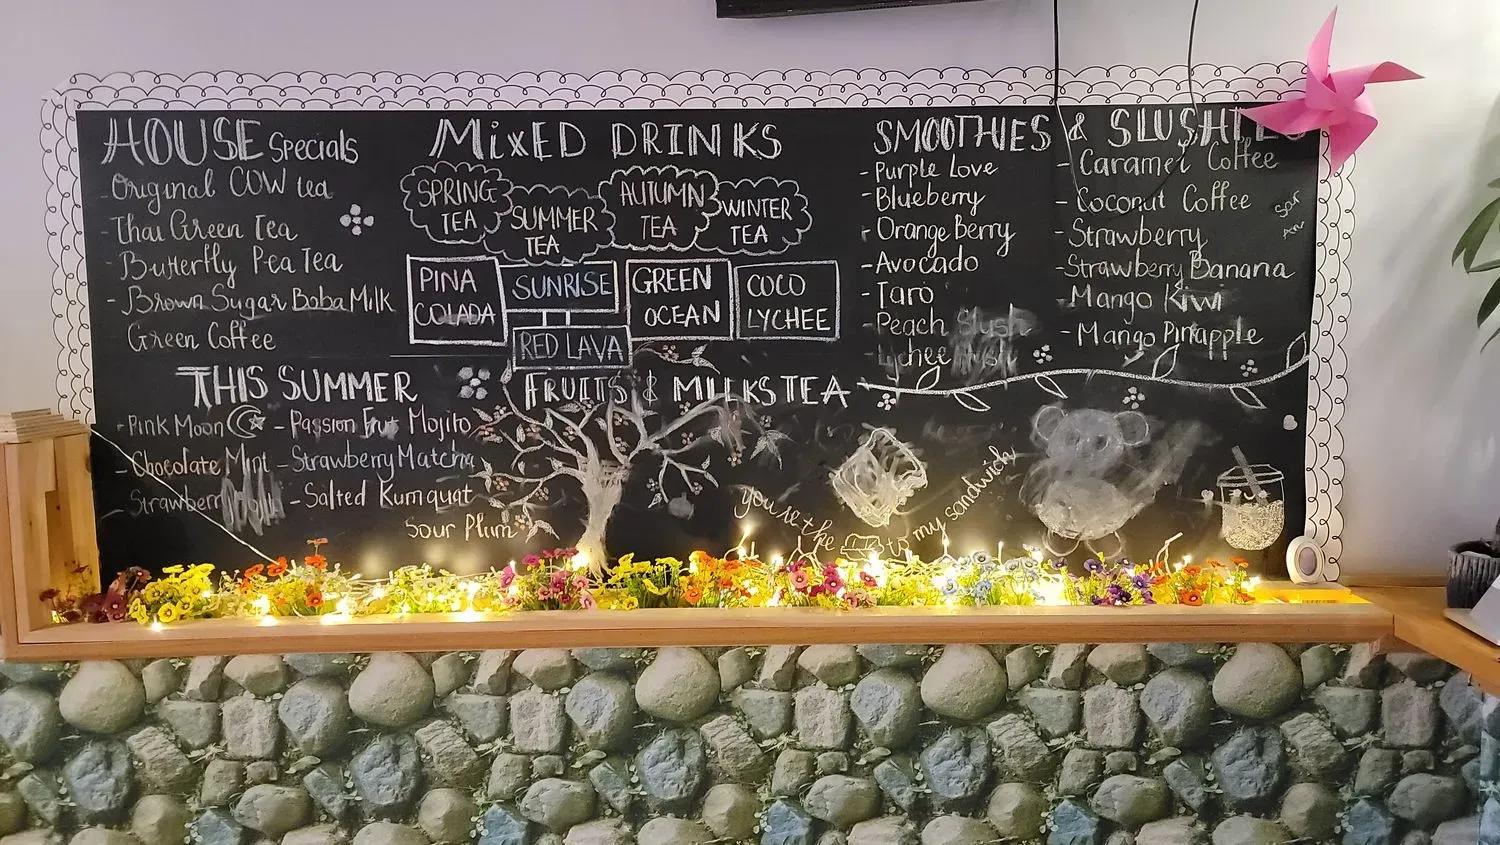 HOUSE Specials
- Original COW tea
- Thai Green Tea
- Butterfly Pea Tea
- Brown Sugar Boba Milk
Green Coffee
MiXED DRINKS
SPRING
TEA
SUMMER
TEA
AUTUMN
TEA
WINTER
TEA
PINA
COLADA
SUNRISE
RED LAVA
GREEN
OCEAN
COCO
LYCHEE
SMOOTHIES & SLUSHIES
- Purple Love
- Blueberry
- Orange Berry
- Avocado
- Taro
- Peach Slush
- Lychee
- Caramel Coffee
- Coconut Coffee
- Strawberry
- Strawberry Banana
- Mango Kiwi
- Mango Pinapple
THIS SUMMER
- Pink Moon
- Chocolate Mint
- Strawberry
- Passion Fruit Mojito
- Strawberry Matcha
- Salted Kumquat
Sour Plum
FRUITS & MILKS TEA
you're the to my sandwich